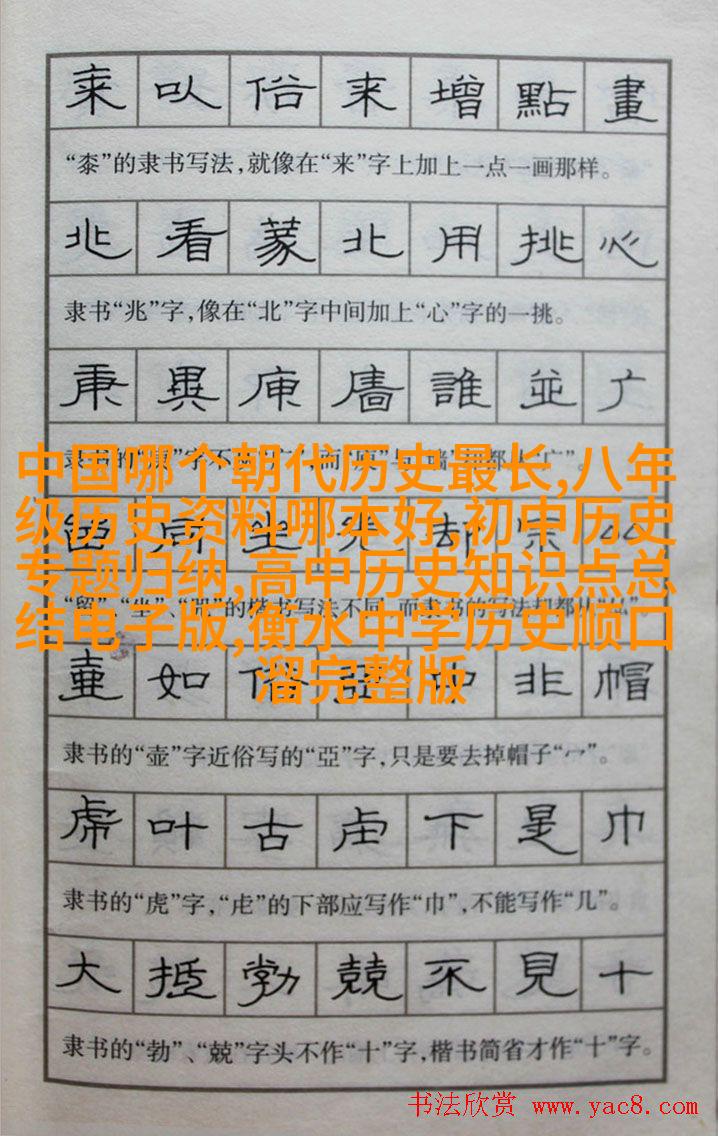 来以俗来增點畫
“桼”的隶书写法,就像在“来”字上加上一点一画那样。
兆看蒙北用挑心
隶书“兆”字,像在“北”字中间加上“心”字的一挑。
庚異庫廧誰並广
中国哪个朝代历史最长,八年
级历史资料哪本好,初中历史
专题归纳,高中历史知识点总
结电子版,衡水中学历史顺口
溜完整版
壷如俗亞中非帽
隶书的“壶”字近俗写的“亞”字,只是要去掉帽子“宀”。
虎叶古虍下是巾
隶书的“虎”字,“虍”的下部应写作“巾”,不能写作“几”。
大抵勃兢不見十
隶书的“勃”、“兢”字头不作“十”字,楷书简省才作“十”字。
书法欣赏 www.yac8.com